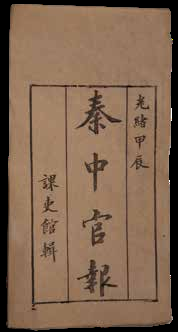 光緒甲辰
秦中官報
課吏館輯